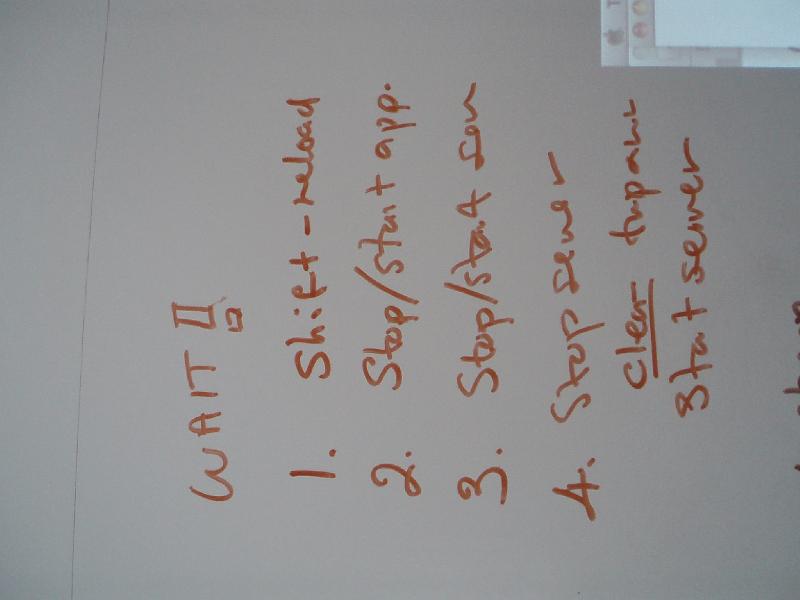 WAIT !!
1. Shift-reload
2. Stop/start app.
3. Stop/start
4. Stop server
clear
Start server